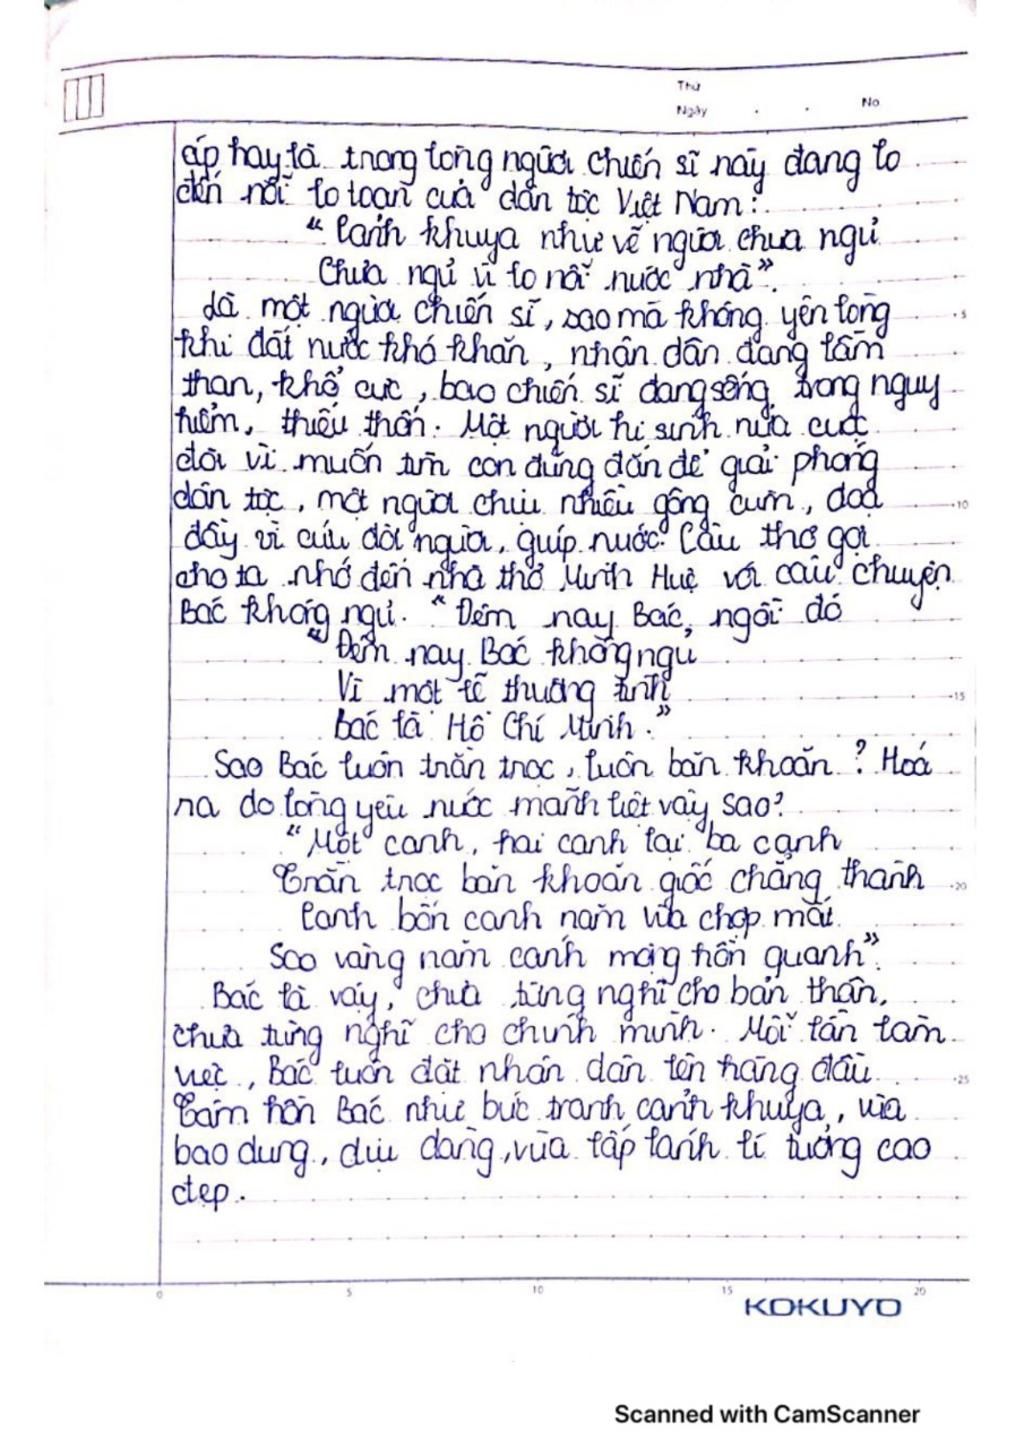 Thứ
Ngày . . No
ấp hay là trong lòng người chiến sĩ này đang lo
đến nỗi lo toan của dân tộc Việt Nam:
“Cảnh khuya như vẽ người chưa ngủ
Chưa ngủ vì lo nỗi nước nhà”.
Là một người chiến sĩ, sao mà không yên lòng
khi đất nước khó khăn, nhân dân đang lầm
than, khổ cực, bao chiến sĩ đang sống trong nguy
hiểm, thiếu thốn. Một người hi sinh nửa cuộc
đời vì muốn tìm con đường đắn để giải phóng
dân tộc, một người chịu nhiều gông cùm, đoạ
đầy vì cứu đời người, giúp nước. Câu thơ gợi
cho ta nhớ đến nhà thơ Minh Huệ với câu chuyện
Bác không ngủ. “Đêm nay Bác, ngồi đó
“Đêm nay Bác không ngủ
Vì một lẽ thường tình
Bác là Hồ Chí Minh.”
Sao Bác luôn trằn trọc, luôn băn khoăn? Hoá
ra do lòng yêu nước mãnh liệt vậy sao?
“Một canh, hai canh lại ba canh
Trằn trọc băn khoăn giấc chẳng thành
Canh bốn canh năm vừa chợp mắt
Sao vàng năm cánh mộng hồn quanh”.
Bác là vậy, chưa từng nghĩ cho bản thân,
chưa từng nghĩ cho chính mình. Mỗi lần làm
việc, Bác luôn đặt nhân dân lên hàng đầu
Tâm hồn Bác như bức tranh cảnh khuya, vừa
bao dung, dịu dàng, vừa lấp lánh lí tưởng cao
đẹp.
5
10
15
20
25
0 5 10 15 20
KOKUYO
Scanned with CamScanner